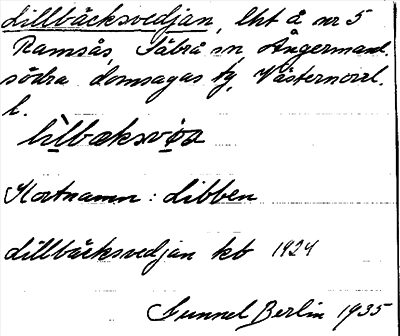 Lillbäcksvedjan, lht å nr 5
Ramsås, Säbrå sn, Ångermanl.
södra domsagas tg, Västernorrl.
l.
lilbæksvöa
Kortnamn: Libben
Lillbäcksvedjan kb 1924
Gunnel Berlin 1935